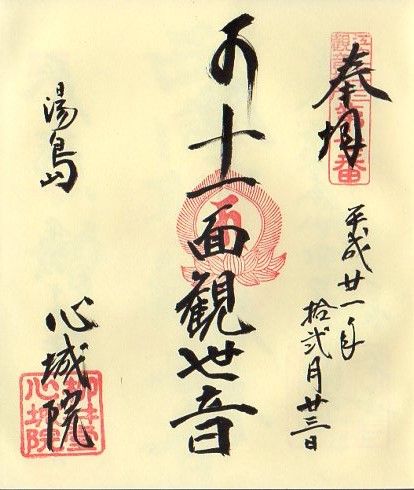 奉拝
平成廿一年
拾弐月廿三日
十一面観世音
湯島
心城院
柳井堂
心城院